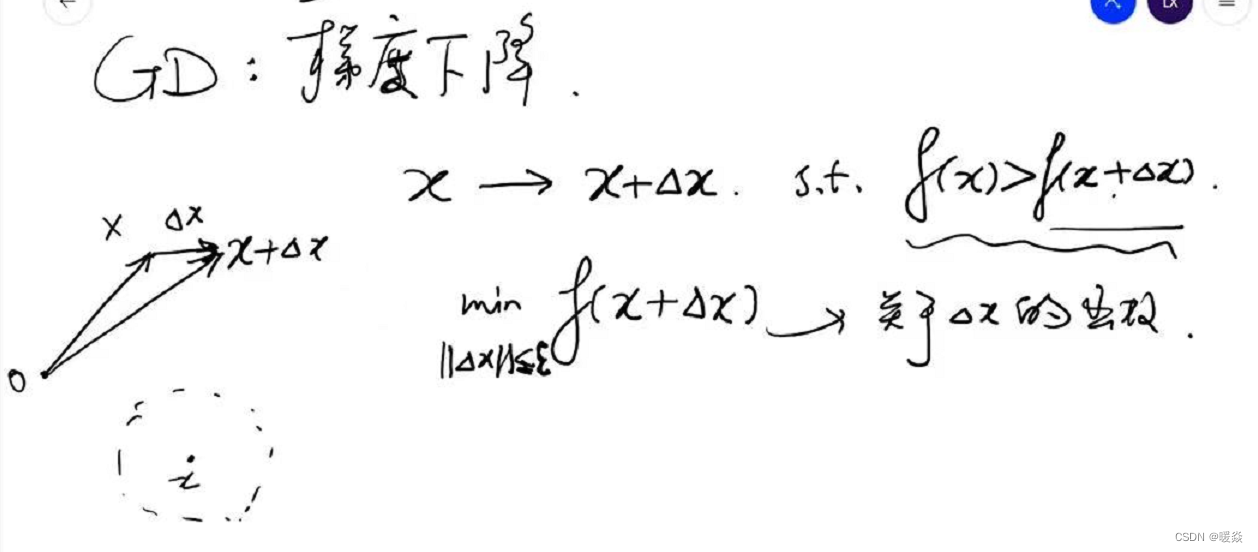 GD：梯度下降．
x → x+Δx． s.t. f(x)>f(x+Δx)．
x Δx x+Δx
min f(x+Δx) → 关于Δx的函数．
||Δx||≤ξ
0
x
CSDN @暖焱